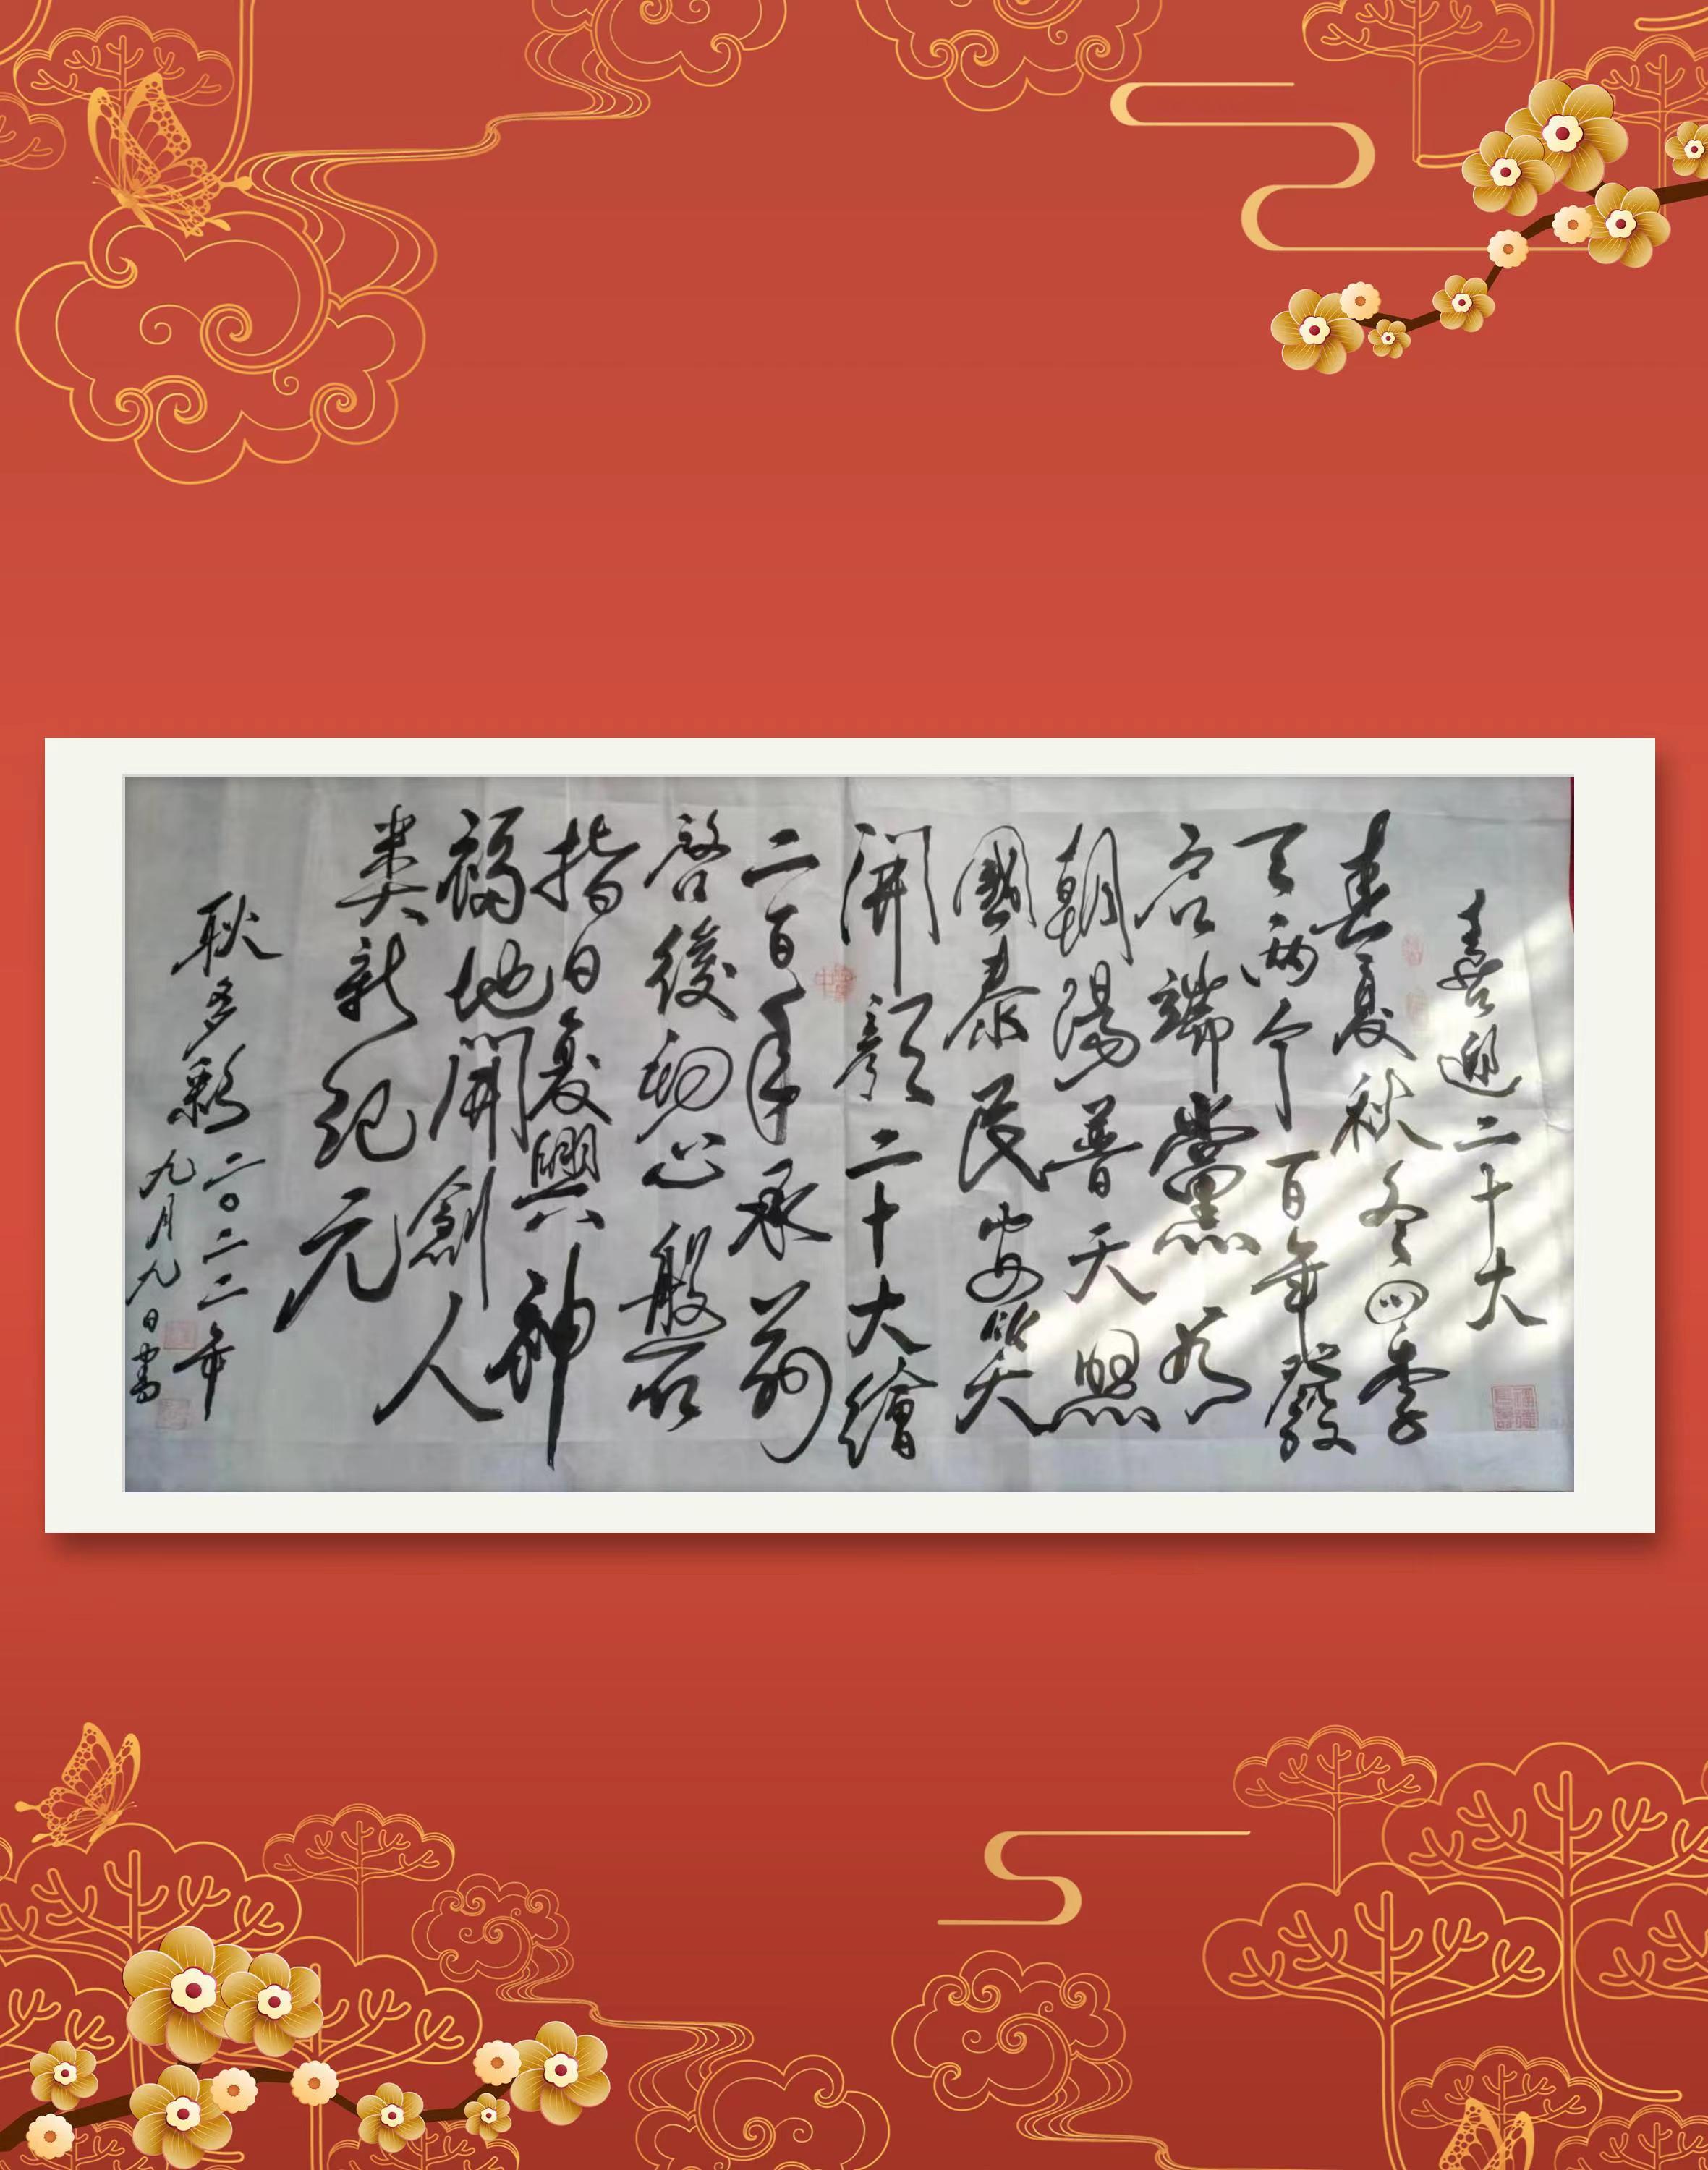 喜迎二十大
春夏秋冬四季
天两个百年發
启端黨為
朝陽普天照
國泰民安笑
開顏二十大繪
二百年承前
啓後初心般石
指日复興神
福地開創人
类新纪元
耿多彩二〇二二年
九月九日書